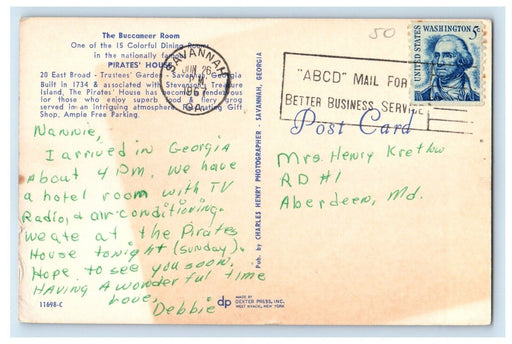 The Buccaneer Room
One of the 15 Colorful Dining Rooms
in the nationally famous
PIRATES' HOUSE
20 East Broad - Trustees' Garden - Savannah, Georgia
Built in 1734 & associated with Stevenson's Treasure
Island, The Pirates' House has become a rendezvous
for those who enjoy superb food & fiery grog
served in an intriguing atmosphere. Fascinating Gift
Shop, Ample Free Parking.
SAVANNAH
JUN 26
PM
1967
GA.
50
UNITED STATES
WASHINGTON 5c
"ABCD" MAIL FOR
BETTER BUSINESS SERVICE
Post Card
Nannie,
I arrived in Georgia
about 4 PM. We have
a hotel room with TV
Radio, & air-conditioning.
We ate at the Pirates
House tonight (Sunday).
Hope to see you soon.
Having a wonderful time
Love,
Debbie
Pub. by CHARLES HENRY PHOTOGRAPHER - SAVANNAH, GEORGIA
Mrs. Henry Kretlow
RD #1
Aberdeen, Md.
11698-C
dp
MADE BY
DEXTER PRESS, INC.
WEST NYACK, NEW YORK